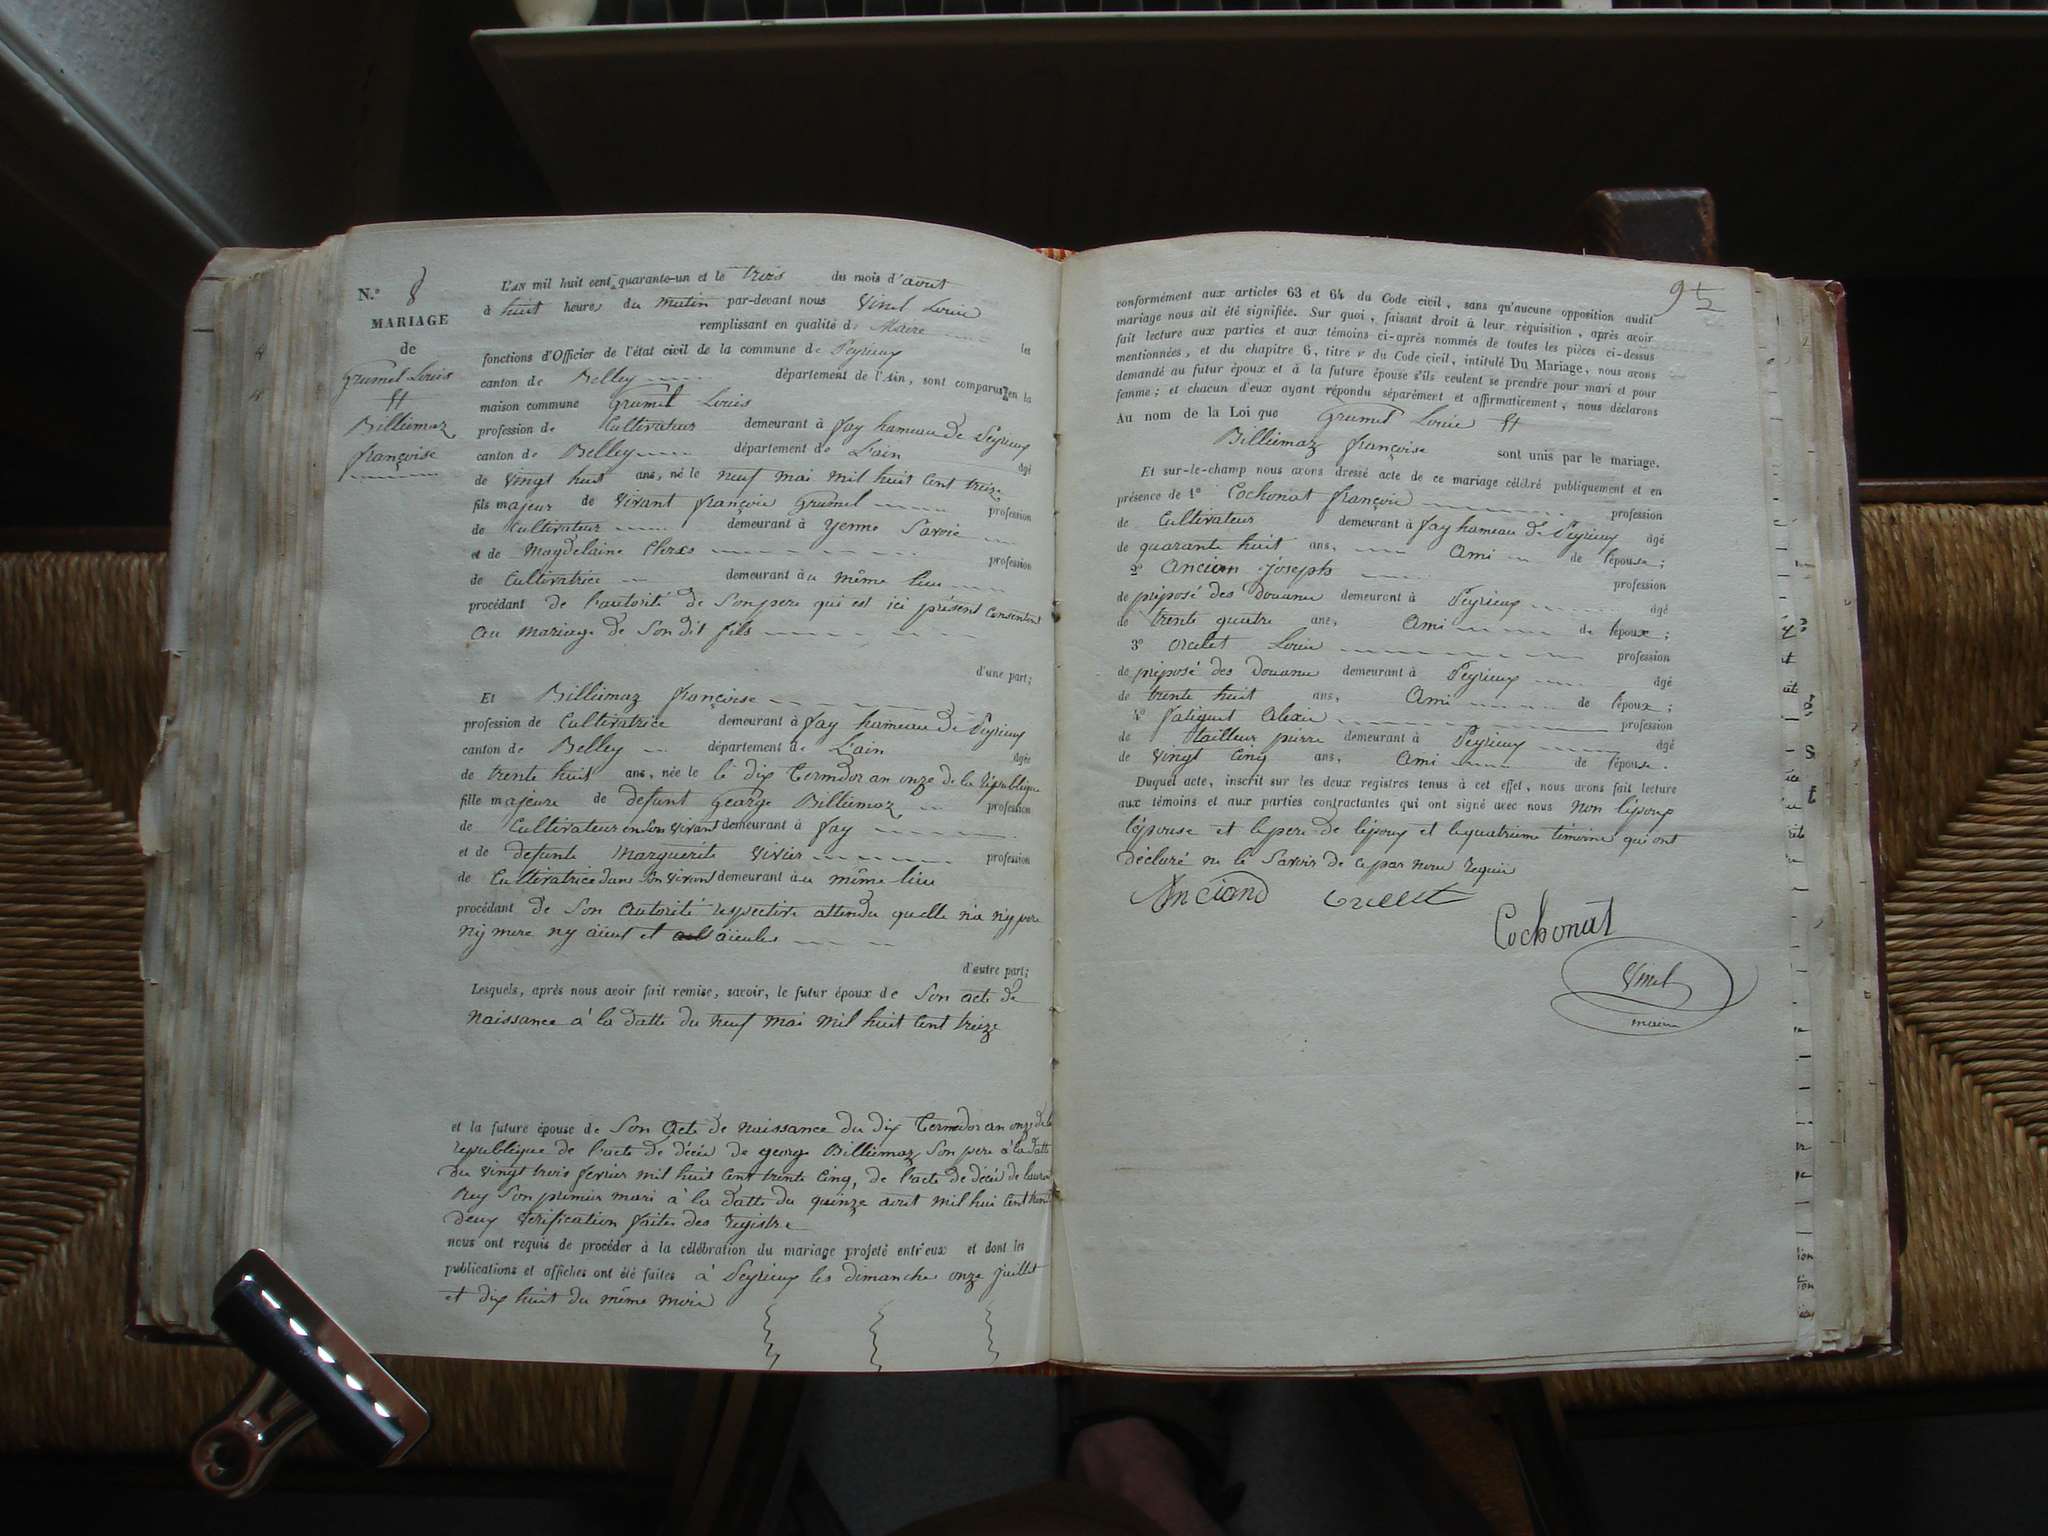 N.º 8
MARIAGE
de
Grumel Louis
et
Billiemaz
françoise
L'AN mil huit cent quarante-un et le trois du mois d'aout
à huit heures du matin par-devant nous Vinel Louis
remplissant en qualité de Maire les
fonctions d'Officier de l'état civil de la commune de Peyrieux
canton de Belley département de l'Ain, sont comparus en la
maison commune Grumel Louis
profession de Cultivateur demeurant à fay hameau de Peyrieux
canton de Belley département de L'ain âgé
de vingt huit ans, né le neuf mai mil huit cent treize
fils majeur de vivant françois Grumel profession
de Cultivateur demeurant à yenne Savoie
et de Magdelaine profession
de Cultivatrice demeurant àu même lieu
procédant de l'autorité de son pere qui est ici présent consentant
au mariage de son dit fils
d'une part;
Et Billiemaz françoise
profession de Cultivatrice demeurant à fay hameau de Peyrieux
canton de Belley département de L'ain âgée
de trente huit ans, née le le dix termidor an onze de la république
fille majeure de defunt george Billiemaz profession
de Cultivateur en son vivant demeurant à fay
et de defunte Marguerite vivier profession
de Cultivatrice dans son vivant demeurant àu même lieu
procédant de son autorité respective attendu quelle n'a ny pere
ny mere ny aïeul et aïeules
d'autre part;
Lesquels, après nous avoir fait remise, savoir, le futur époux de son acte de
naissance à la datte du neuf mai mil huit cent treize
et la future épouse de son acte de naissance du dix termidor an onze de la
republique de l'acte de décès de george Billiemaz son pere à la datte
du vingt trois fevrier mil huit cent trente cinq, de l'acte de décès de laurent
Rey son premier mari à la datte du quinze aout mil hui cent trente
deux verification faites des registre
nous ont requis de procéder à la célébration du mariage projeté entr'eux et dont les
publications et affiches ont été faites à Peyrieux les dimanches onze juillet
et dix huit du même mois
95
conformément aux articles 63 et 64 du Code civil, sans qu'aucune opposition audit
mariage nous ait été signifiée. Sur quoi, faisant droit à leur réquisition, après avoir
fait lecture aux parties et aux témoins ci-après nommés de toutes les pièces ci-dessus
mentionnées, et du chapitre 6, titre v du Code civil, intitulé Du Mariage, nous avons
demandé au futur époux et à la future épouse s'ils veulent se prendre pour mari et pour
femme; et chacun d'eux ayant répondu séparément et affirmativement, nous déclarons
Au nom de la Loi que Grumel Louis et
Billiemaz françoise sont unis par le mariage.
Et sur-le-champ nous avons dressé acte de ce mariage célébré publiquement et en
présence de 1º Cochonat françois profession
de Cultivateur demeurant à fay hameau de Peyrieux âgé
de quarante huit ans, Ami de l'épouse;
2º Ancian joseph profession
de préposé des Douanes demeurant à Peyrieux âgé
de trente quatre ans, Ami de l'époux;
3º Louis profession
de préposé des Douanes demeurant à Peyrieux âgé
de trente huit ans, Ami de l'époux;
4º Alexis profession
de tailleur pierre demeurant à Peyrieux âgé
de vingt cinq ans, Ami de l'épouse.
Duquel acte, inscrit sur les deux registres tenus à cet effet, nous avons fait lecture
aux témoins et aux parties contractantes qui ont signé avec nous non l'époux
l'épouse et le pere de l'époux et le quatrieme témoins qui ont
déclaré ne le savoir de ce par nous requis
Anciand
Cochonat
Vinel
maire